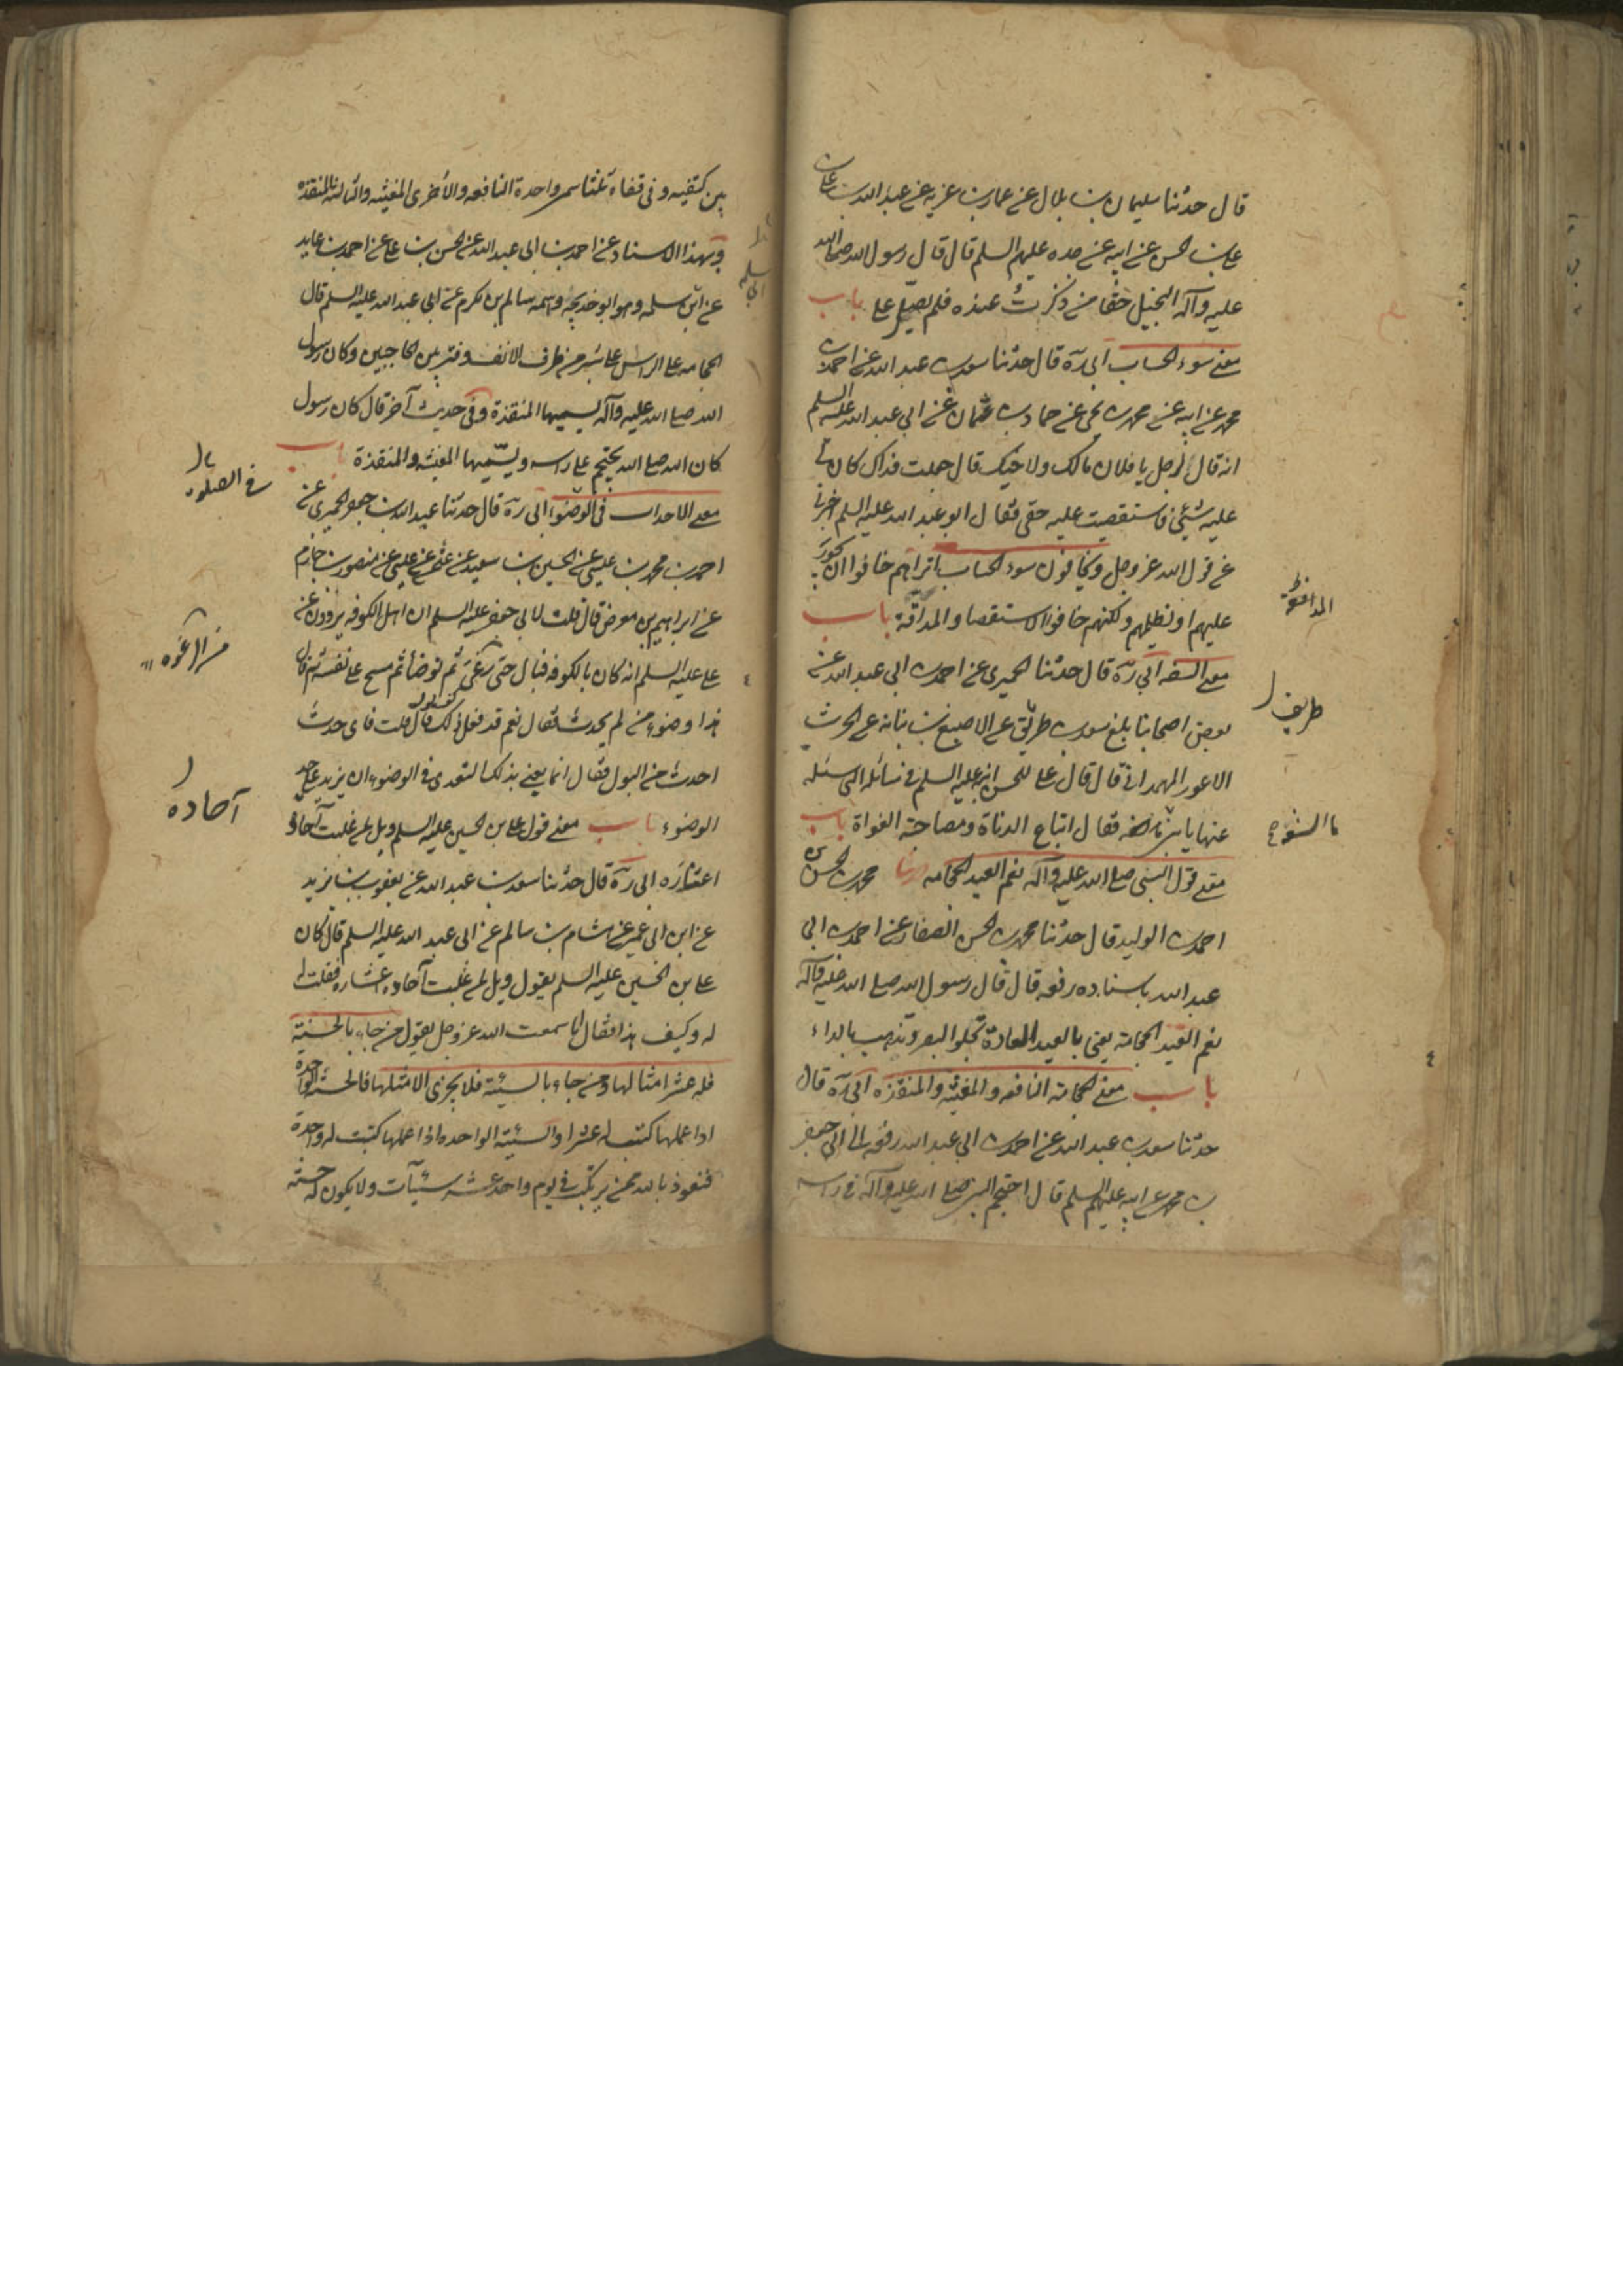 قال حدثنا سليمان بن بلال عن عمارة بن غزيه عن عبد الله بن على
على بن الحسين عن ابيه عن جده عليهم السلم قال قال رسول الله صلى الله
عليه وآله البخيل حقا من ذكرتُ عنده فلم يصلّ على باب
معنى سوء الحساب ابى ره قال حدثنا سعد بن عبد الله عن احمد بن
محمد عن ابيه عن محمد بن يحيى عن حماد بن عثمان عن ابى عبد الله عليه السلم
انه قال لرجل يا فلان مالك ولاخيك قال جعلت فداك كان لى
عليه شئ فاستقصيت عليه حقى فقال ابو عبد الله عليه السلم اخبرنى
عن قول الله عز وجل ويخافون سوء الحساب اتراهم خافوا ان يجور
عليهم او يظلمهم ولكنهم خافوا الاستقصا والمداقة باب
المداقة
معنى السفه ابى ره قال حدثنا الحميرى عن احمد بن ابى عبد الله عن
بعض اصحابنا بلغ سعد بن طريف عن الاصبغ بن نباته عن الحرث
طريف
الاعور الهمدانى قال قال على للحسن ابنه عليه السلم فى مسائله التى سئله
عنها يا بنى ما السفه فقال اتباع الدناة ومصاحبة الغواة باب
ما السفه
معنى قول النبى صلى الله عليه وآله نعم العيد الحجامه محمد بن الحسن بن
احمد بن الوليد قال حدثنا محمد بن الحسن الصفار عن احمد بن ابى
عبد الله باسناده رفعه قال قال رسول الله صلى الله عليه وآله
نعم العيد الحجامة يعنى بالعيد العادة تجلو البصر وتذهب بالداء
باب معنى الحجامة النافعه والمغيثه والمنقذه ابى ره قال
حدثنا سعد بن عبد الله عن احمد بن ابى عبد الله رفعه الى ابى جعفر
بن محمد عن ابيه عليهم السلم قال احتجم النبى صلى الله عليه وآله فى راسه
بين كتفيه وفى قفاه ثلثا سمى واحدة النافعه والأخرى المغيثه والثالثه المنقذه
وبهذا الاسناد عن احمد بن ابى عبد الله عن الحسن بن على عن احمد بن عايد
عن ابى سلمه وهو ابو خديجه واسمه سالم بن مكرم عن ابى عبد الله عليه السلم قال
الحجامه على الراس على شبر من طرف الانف وفتر بين الحاجبين وكان رسول
الله صلى الله عليه وآله يسميها المنقذة وفى حديث آخر قال كان رسول
كان الله صلى الله يحتجم على راسه ويسمّيها المغيثه والمنقذة باب
معنى الاحداث فى الوضوء ابى ره قال حدثنا عبد الله بن جعفر الحميرى عن
احمد بن محمد بن عيسى عن الحسين بن سعيد عن على عن منصور بن حازم
عن ابراهيم بن معرض قال قلت لابى جعفر عليه السلم ان اهل الكوفه يروون عن
على عليه السلم انه كان بالكوفه فبال حتى رغى ثم توضأ ثم مسح على نعليه ثم قال
من الرغوه
هذا وضوء من لم يحدث فقال نعم قد فعل ذلك قال قلت فاى حدث
احدث من البول فقال انما يعنى بذلك التعدى فى الوضوء ان يزيد على حد
الوضوء باب معنى قول على بن الحسين عليه السلم ويل لمن غلبت آحاده
آحاده
اعشاره ابى ره قال حدثنا سعد بن عبد الله عن يعقوب بن يزيد
عن ابن ابى عمير عن هشام بن سالم عن ابى عبد الله عليه السلم قال كان
على بن الحسين عليه السلم يقول ويل لمن غلبت آحاده اعشاره فقلت
له وكيف هذا فقال اما سمعت الله عز وجل يقول من جاء بالحسنة
فله عشر امثالها ومن جاء بالسيئة فلا يجزى الا مثلها فالحسنة الواحدة
اذا عملها كتبت له عشرا والسيئة الواحده اذا عملها كتبت له واحدة
فنعوذ بالله ممن يرتكب فى يوم واحد عشر سيئآت ولا يكون له حسنة